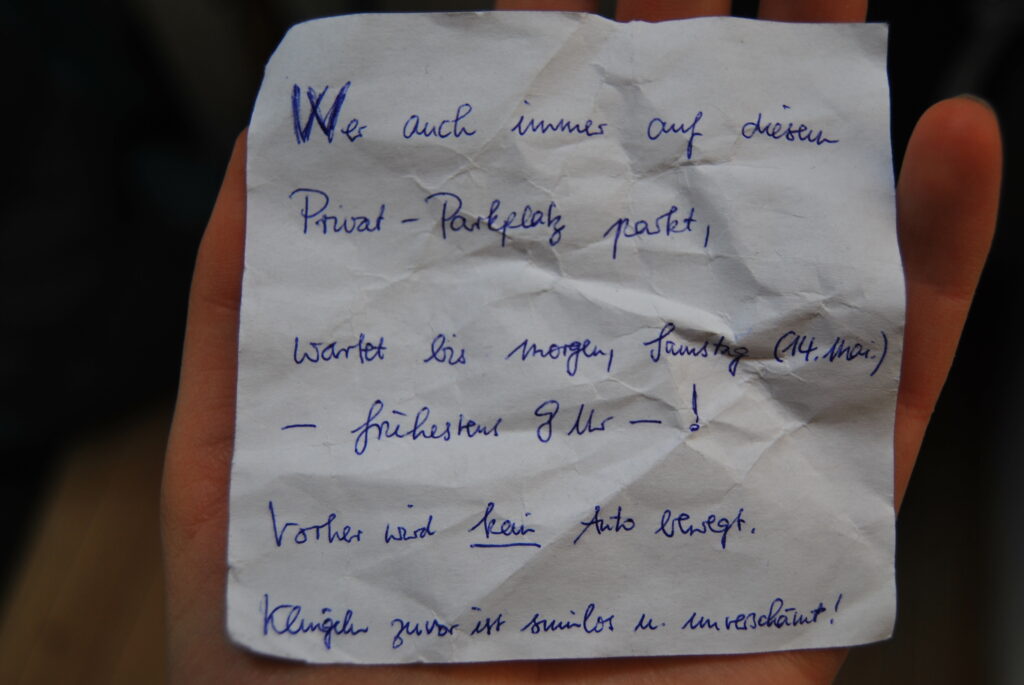 Wer auch immer auf diesem
Privat-Parkplatz parkt,
wartet bis morgen, Samstag (14. Mai.)
— frühestens 8 Uhr — !
Vorher wird kein Auto bewegt.
Klingeln zuvor ist sinnlos u. unverschämt!